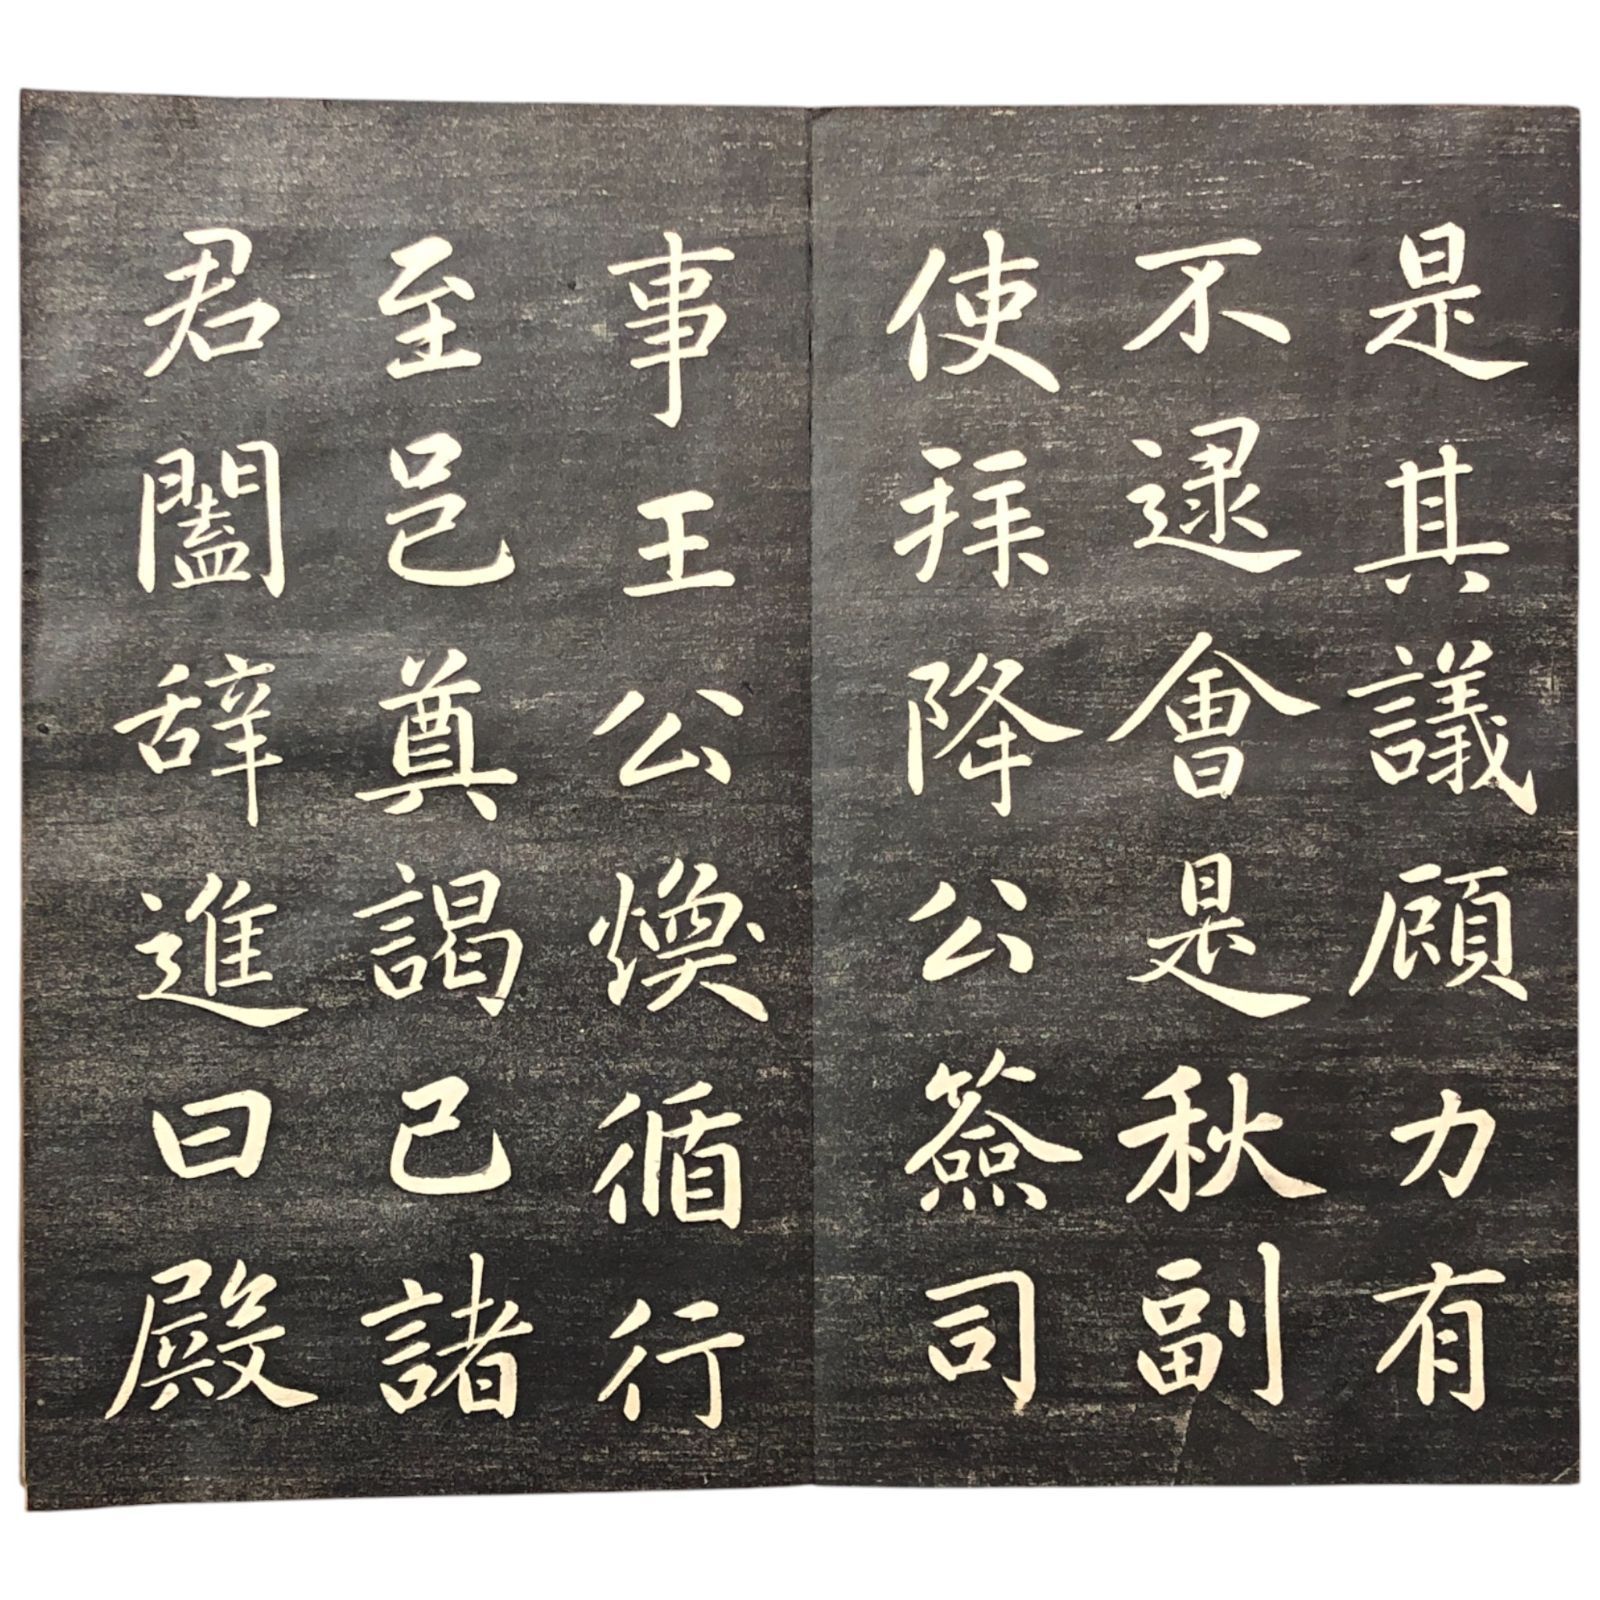 是其議顧力有
不逮會是秋副
使拜降公簽司
事王公煥循行
至邑奠謁已諸
君闔辞進曰殿